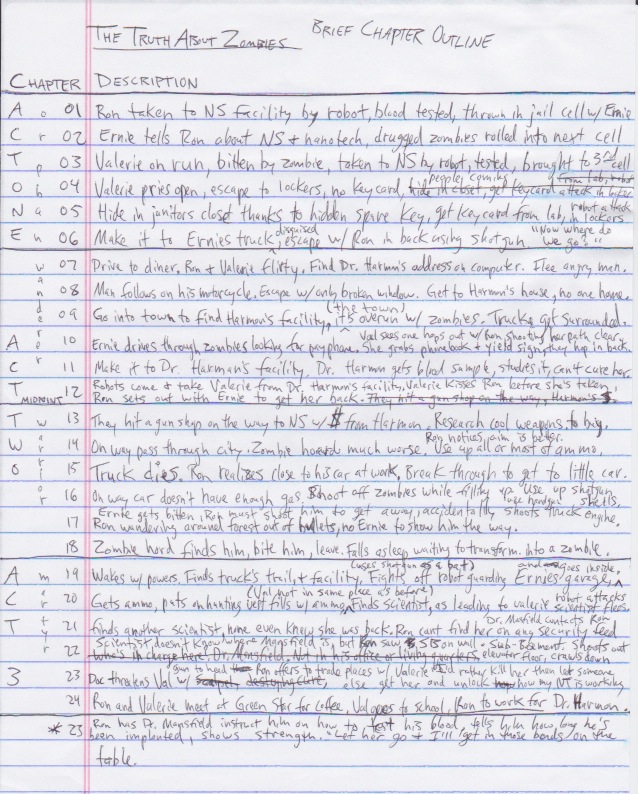 The Truth About Zombies Brief Chapter Outline
Chapter Description
A o 01 Ron taken to NS facility by robot, blood tested, thrown in jail cell w/ Ernie
C r 02 Ernie tells Ron about NS & nanotech, drugged zombies rolled into next cell
T p 03 Valerie on run, bitten by zombie, taken to NS by robot, tested, brought to 3rd cell
O h 04 Valerie pries open, escape to lockers, no key card, hide in closet, people coming get keycard from lab, robot attack in locker
N a 05 Hide in janitors closet thanks to hidden spare key, get key card from lab, robot attack in lockers
E n 06 Make it to Ernies truck, disguised escape w/ Ron in back using shotgun. "Now where do we go?"
w 07 Drive to diner. Ron & Valerie flirty. Find Dr. Harmon's address on computer. Flee angry man.
a n 08 Man follows on his motorcycle. Escape w/ only broken window. Get to Harmon's house, no one home.
d e 09 Go into town to find Harmon's facility, it's (the town) overun w/ zombies. Truck get surrounded.
A r e 10 Ernie drives through zombies looking for payphone. Val sees one hops out w/ Ron shooting her path clear. She grabs phonebook & yield sign, they hop in back.
C r 11 Make it to Dr. Harman's facility. Dr. Harman gets blood sample, studies it, cant cure her.
T MIDPOINT 12 Robots come & take Valerie from Dr. Harmon's facility. Valerie kisses Ron before she's taken.
Ron sets out with Ernie to get her back. They hit a gun shop on the way, Harmon's $.
T w 13 They hit a gun shop on the way to NS w/ $ from Harmon. Research cool weapons to big.
W a r 14 On way pass through city. Zombie hoards much worse. Ron notices aim is better. Use up all or most of ammo.
O r i 15 Truck dies. Ron realizes close to his car at work. Break through to get to little car.
o r 16 On way car doesn't have enough gas. Shoot off zombies while filling up. Use up shotgun shells,
17 Ernie gets bitten, Ron must shoot him to get away, accidentally shoots truck engine.
Ron wandering around forest out of bullets, no Ernie to show him the way.
18 Zombie hord finds him, bite him, leave. Falls asleep waiting to transform into a zombie.
A m 19 Wakes w/ powers. Finds truck's trail, & facility. Fights off robot guarding (uses shotgun as a bat) Ernies garage, and goes inside.
C a r 20 Gets ammo, puts on hunting vest fills w/ ammo, (Val not in same place as before) Finds scientist, as leading to valerie robot attacks scientist flees.
T t 21 finds another scientist, none even knew she was back. Ron cant find her on any security feed Dr. Mansfield contacts Ron
y r 22 Scientist doesn't know where Mansfield is, but Ron saw SB on wall - Sub-Basement. Shoots out
who's in charge here? Dr. Mansfield. Not in his office or living quarters, elevator floor, crawls down
3 23 Doc threatens Val w/ gun to head Ron offers to trade places w/ Valerie. Did rather kill her than let someone
else get her and unlock how my NT is working
24 Ron and Valerie meet at Green Star for coffee. Val goes to school, Ron to work for Dr. Harmon.
* 23 Ron has Dr. Mansfield instruct him on how to test his blood, tells him how long he's
been implanted, shows strength. "Let her go & I'll get in those bonds on the
table.